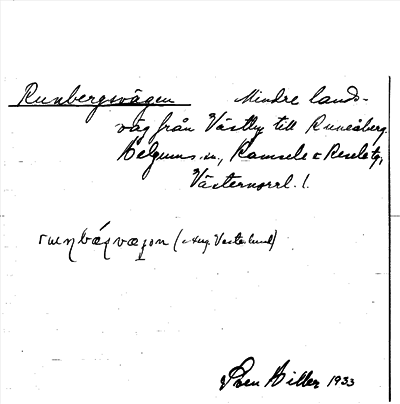 Runbergsvägen Mindre lands-
väg från Västby till Runeåberg.
Helgums sn, Ramsele & Resele tg,
Västernorrl. l.
(Aug. Vesterlund)
Sven Hiller 1933